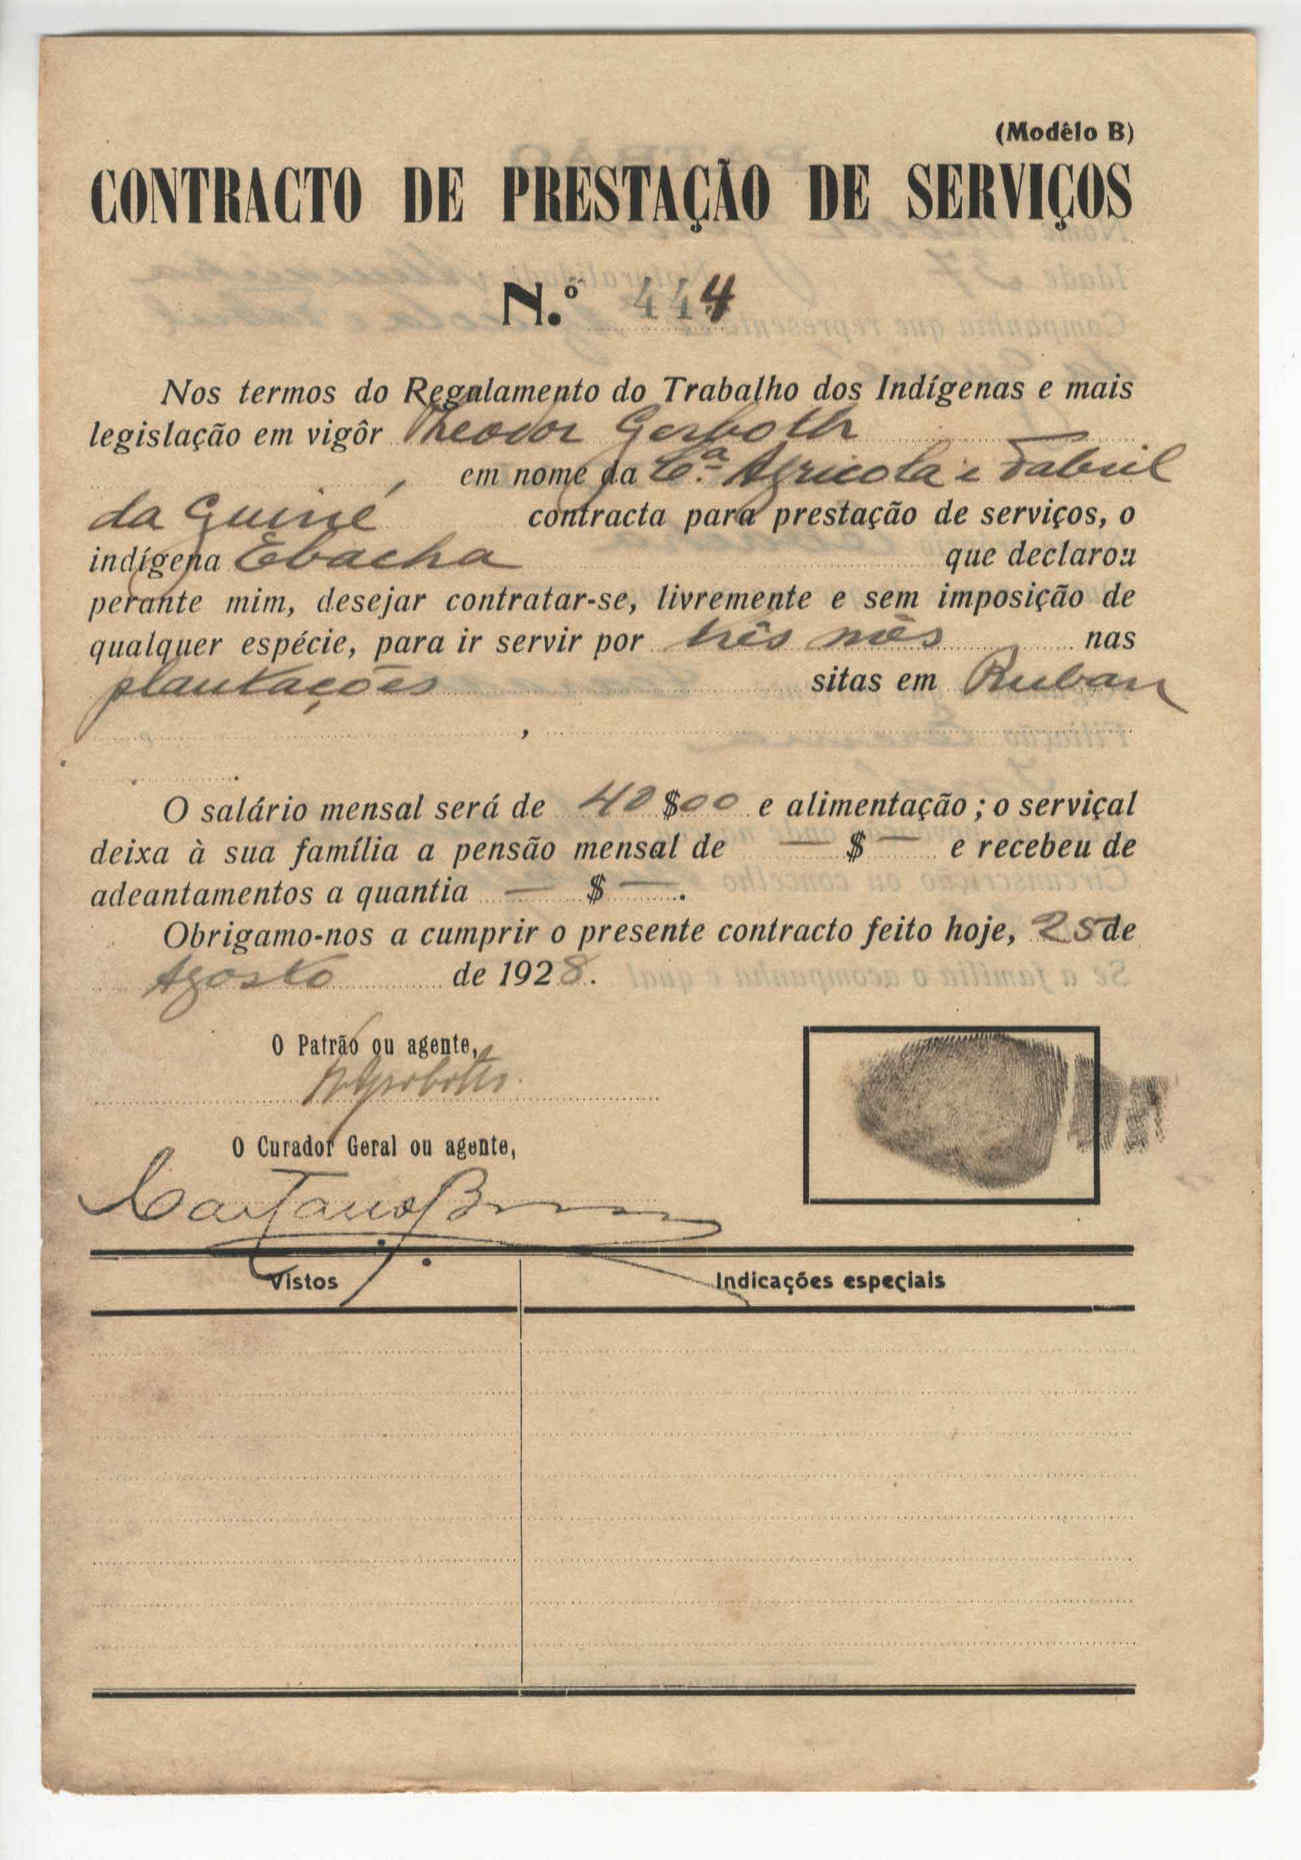 (Modêlo B)
CONTRACTO DE PRESTAÇÃO DE SERVIÇOS
N.º 444
Nos termos do Regulamento do Trabalho dos Indígenas e mais
legislação em vigôr Theodor Gerboth
, em nome da Cª Agricola e Fabril
da Guiné contracta para prestação de serviços, o
indígena Ebacha que declarou
perante mim, desejar contratar-se, livremente e sem imposição de
qualquer espécie, para ir servir por três mês nas
plantações sitas em Ruban
,
.
O salário mensal será de 40$00 e alimentação; o serviçal
deixa à sua família a pensão mensal de — $ — e recebeu de
adeantamentos a quantia — $ —.
Obrigamo-nos a cumprir o presente contracto feito hoje, 25 de
Agosto de 1928.
O Patrão ou agente,
O Curador Geral ou agente,
Caetano
Vistos Indicações especiais